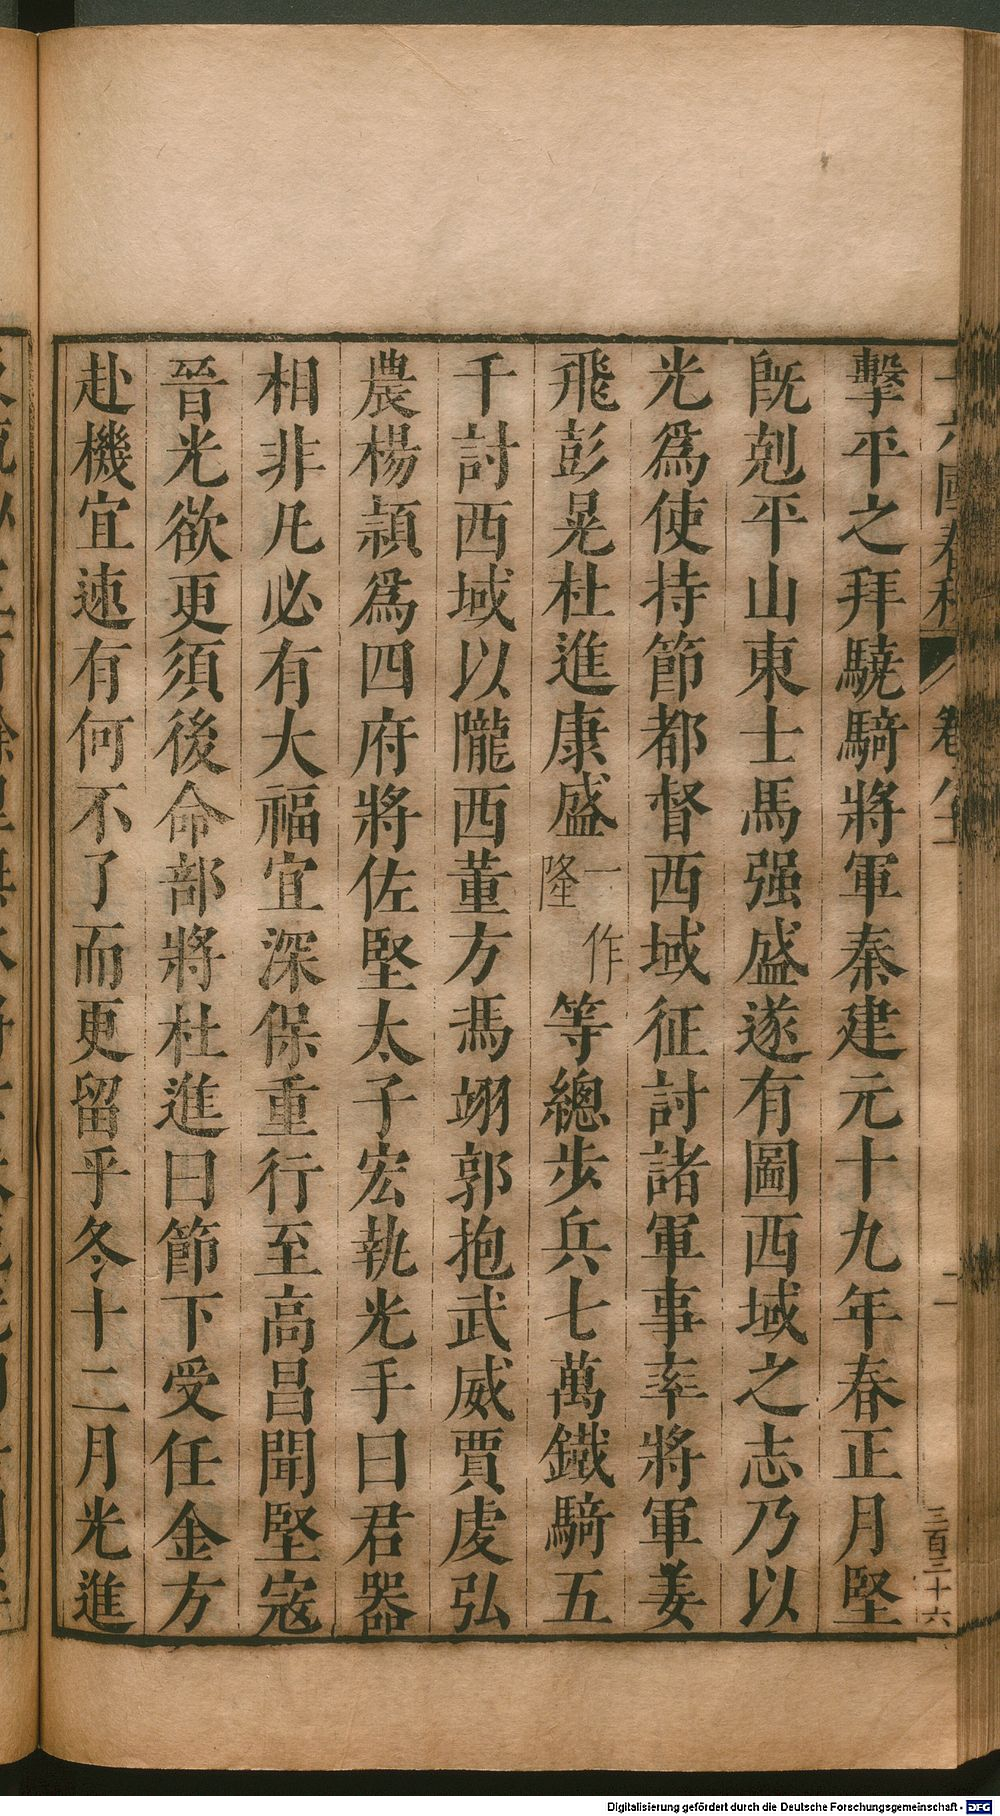 十六國春秋 卷八十一
二
三百三十六
擊平之拜驍騎將軍秦建元十九年春正月堅
旣剋平山東士馬强盛遂有圖西域之志乃以
光爲使持節都督西域征討諸軍事率將軍姜
飛彭晃杜進康盛一作隆等總步兵七萬鐵騎五
千討西域以隴西董方馮翊郭抱武威賈虔弘
農楊潁爲四府將佐堅太子宏執光手曰君器
相非凡必有大福宜深保重行至高昌聞堅寇
晉光欲更須後命部將杜進曰節下受任金方
赴機宜速有何不了而更留乎冬十二月光進
Digitalisierung gefördert durch die Deutsche Forschungsgemeinschaft - DFG